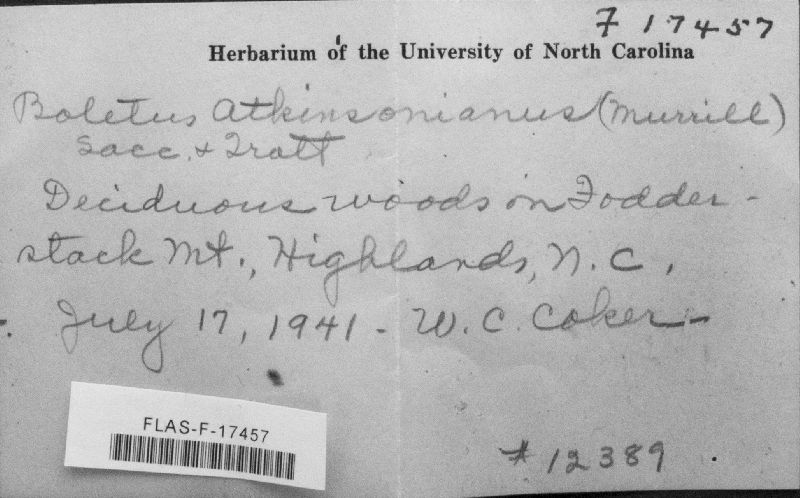 F 17457
Herbarium of the University of North Carolina
Boletus Atkinsonianus (Murrill)
Sacc. & Trott
Deciduous woods on Fodder-
stack Mt., Highlands, N. C.,
July 17, 1941 - W. C. Coker -
FLAS-F-17457
# 12389